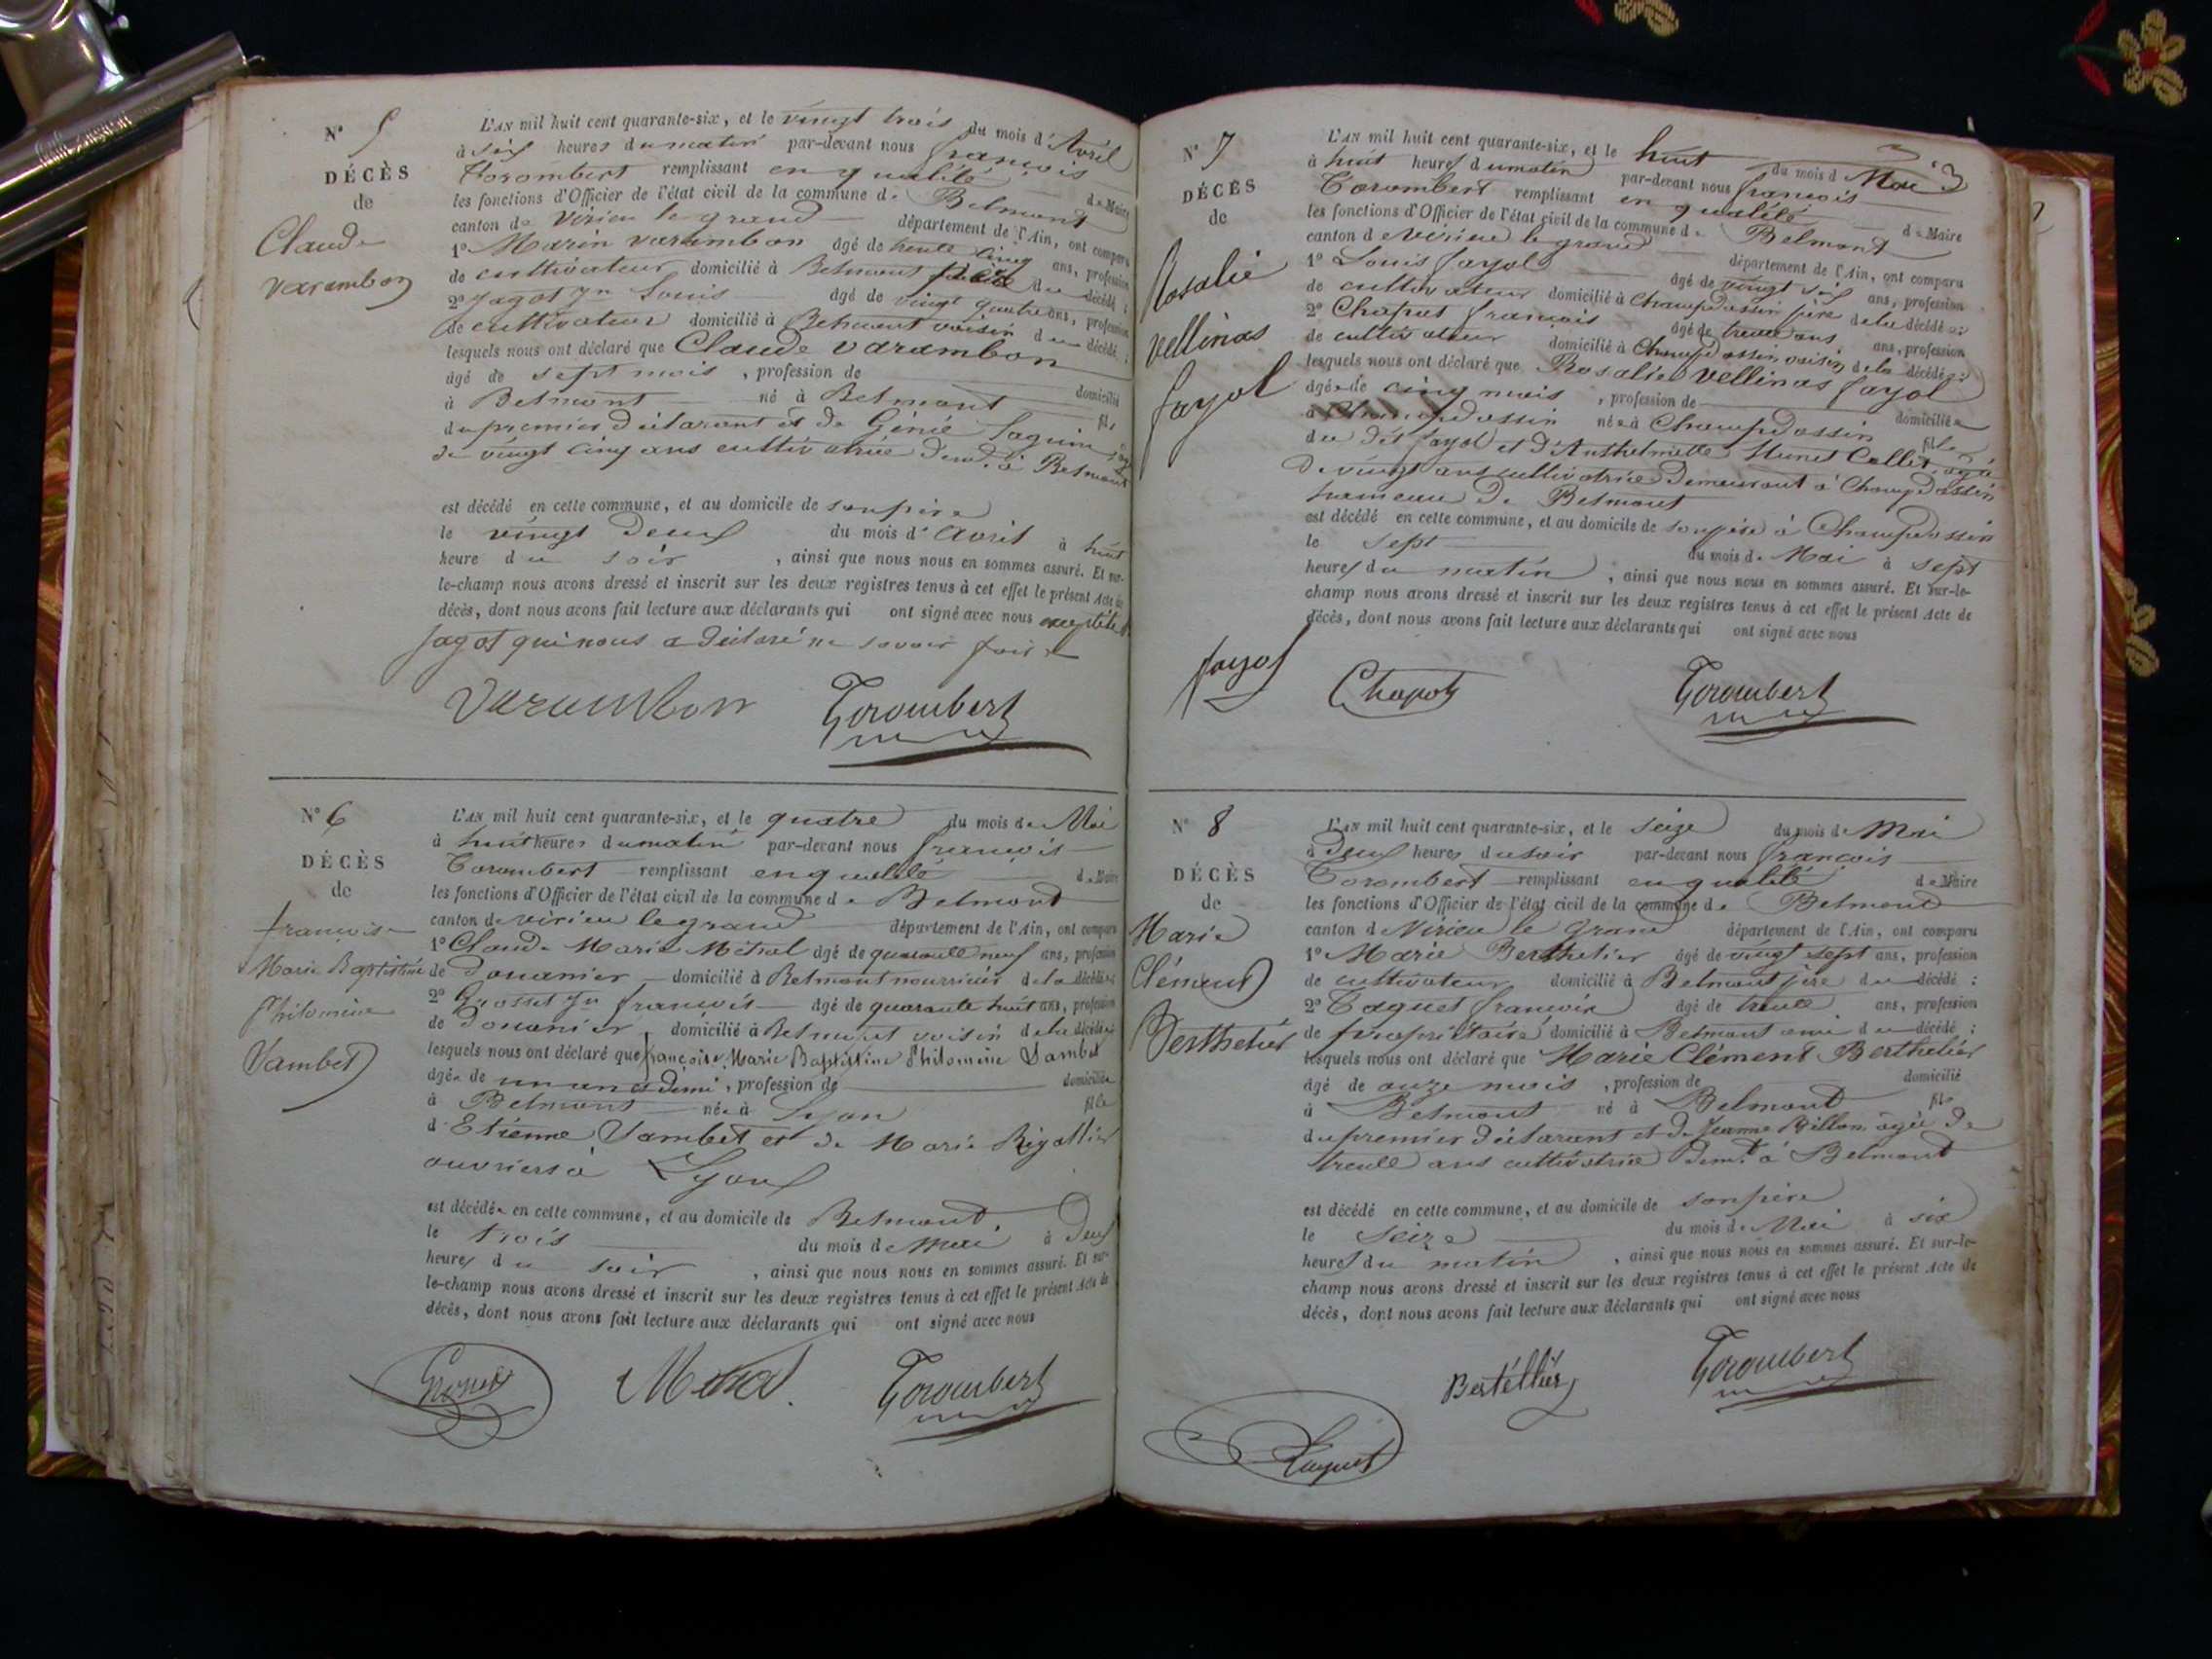 N° 5
DÉCÈS
de
Claude
Varambon
L'AN mil huit cent quarante-six, et le vingt trois du mois d'Avril
à six heures du matin par-devant nous françois
Torombert remplissant en qualité de Maire
les fonctions d'Officier de l'état civil de la commune de Belmont
canton de Virieu le grand département de l'Ain, ont comparu
1° Marin Varambon âgé de trente cinq ans, profession
de cultivateur domicilié à Belmont du décédé ;
2° Jagot Jn Louis âgé de vingt quatre ans, profession
de cultivateur domicilié à Belmont voisin du décédé ;
lesquels nous ont déclaré que Claude Varambon
âgé de sept mois, profession de domicilié
à Belmont né à Belmont fils
du premier déclarant et de Génie
de vingt cinq ans cultivatrice dem.t à Belmont
est décédé en cette commune, et au domicile de son père
le vingt deux du mois d'Avril à huit
heure du soir, ainsi que nous nous en sommes assuré. Et sur-
le-champ nous avons dressé et inscrit sur les deux registres tenus à cet effet le présent Acte de
décès, dont nous avons fait lecture aux déclarants qui ont signé avec nous
Jagot qui nous a déclaré ne savoir faire
Varambon Torombert
N° 6
DÉCÈS
de
françoise
Marie Baptistine
Philomine
Vambet
L'AN mil huit cent quarante-six, et le quatre du mois de Mai
à huit heures du matin par-devant nous françois
Torombert remplissant en qualité de Maire
les fonctions d'Officier de l'état civil de la commune de Belmont
canton de Virieu le grand département de l'Ain, ont comparu
1° Claude Marie Métral âgé de quarante neuf ans, profession
de Douanier domicilié à Belmont nourricier de la décédée ;
2° Grosset Jn françois âgé de quarante huit ans, profession
de Douanier, domicilié à Belmont voisin de la décédée ;
lesquels nous ont déclaré que françoise Marie Baptistine Philomine Vambet
âgée de un an et demi, profession de domiciliée
à Belmont née à Lyon fille
d'Etienne Vambet et de Marie Rigattier
ouvriers à Lyon
est décédée en cette commune, et au domicile de Belmont
le trois du mois de Mai à deux
heures du soir, ainsi que nous nous en sommes assuré. Et sur-
le-champ nous avons dressé et inscrit sur les deux registres tenus à cet effet le présent Acte de
décès, dont nous avons fait lecture aux déclarants qui ont signé avec nous
Grosset Métral Torombert
3
N° 7
DÉCÈS
de
Rosalie
Vellinas
fayol
L'AN mil huit cent quarante-six, et le huit du mois de Mai
à huit heures du matin par-devant nous françois
Torombert remplissant en qualité de Maire
les fonctions d'Officier de l'état civil de la commune de Belmont
canton de Virieu le grand département de l'Ain, ont comparu
1° Louis fayol âgé de vingt six ans, profession
de cultivateur domicilié à Champdossin père de la décédée ;
2° Chapot françois âgé de trente ans, profession
de cultivateur domicilié à Champdossin voisin de la décédée ;
lesquels nous ont déclaré que Rosalie Vellinas fayol
âgée de cinq mois, profession de domiciliée
à Champdossin née à Champdossin fille
du dit fayol et d'Anthelmette Hunet Collet âgée
de vingt ans cultivatrice demeurant à Champdossin
hameau de Belmont
est décédé en cette commune, et au domicile de son père à Champdossin
le sept du mois de Mai à sept
heures du matin, ainsi que nous nous en sommes assuré. Et sur-le-
champ nous avons dressé et inscrit sur les deux registres tenus à cet effet le présent Acte de
décès, dont nous avons fait lecture aux déclarants qui ont signé avec nous
fayol Chapot Torombert
N° 8
DÉCÈS
de
Marie
Clément
Berthelier
L'AN mil huit cent quarante-six, et le seize du mois de Mai
à Deux heures du soir par-devant nous françois
Torombert remplissant en qualité de Maire
les fonctions d'Officier de l'état civil de la commune de Belmont
canton de Virieu le Grand département de l'Ain, ont comparu
1° Marie Berthelier âgé de vingt sept ans, profession
de cultivateur domicilié à Belmont père du décédé ;
2° Taguet françois âgé de trente ans, profession
de propriétaire domicilié à Belmont ami du décédé ;
lesquels nous ont déclaré que Marie Clément Berthelier
âgé de onze mois, profession de domicilié
à Belmont né à Belmont fils
du premier déclarant et de Jeanne Billon âgée de
trente ans cultivatrice dem.t à Belmont
est décédé en cette commune, et au domicile de son père
le seize du mois de Mai à six
heures du matin, ainsi que nous nous en sommes assuré. Et sur-le-
champ nous avons dressé et inscrit sur les deux registres tenus à cet effet le présent Acte de
décès, dont nous avons fait lecture aux déclarants qui ont signé avec nous
Bertéllier Torombert
Taguet